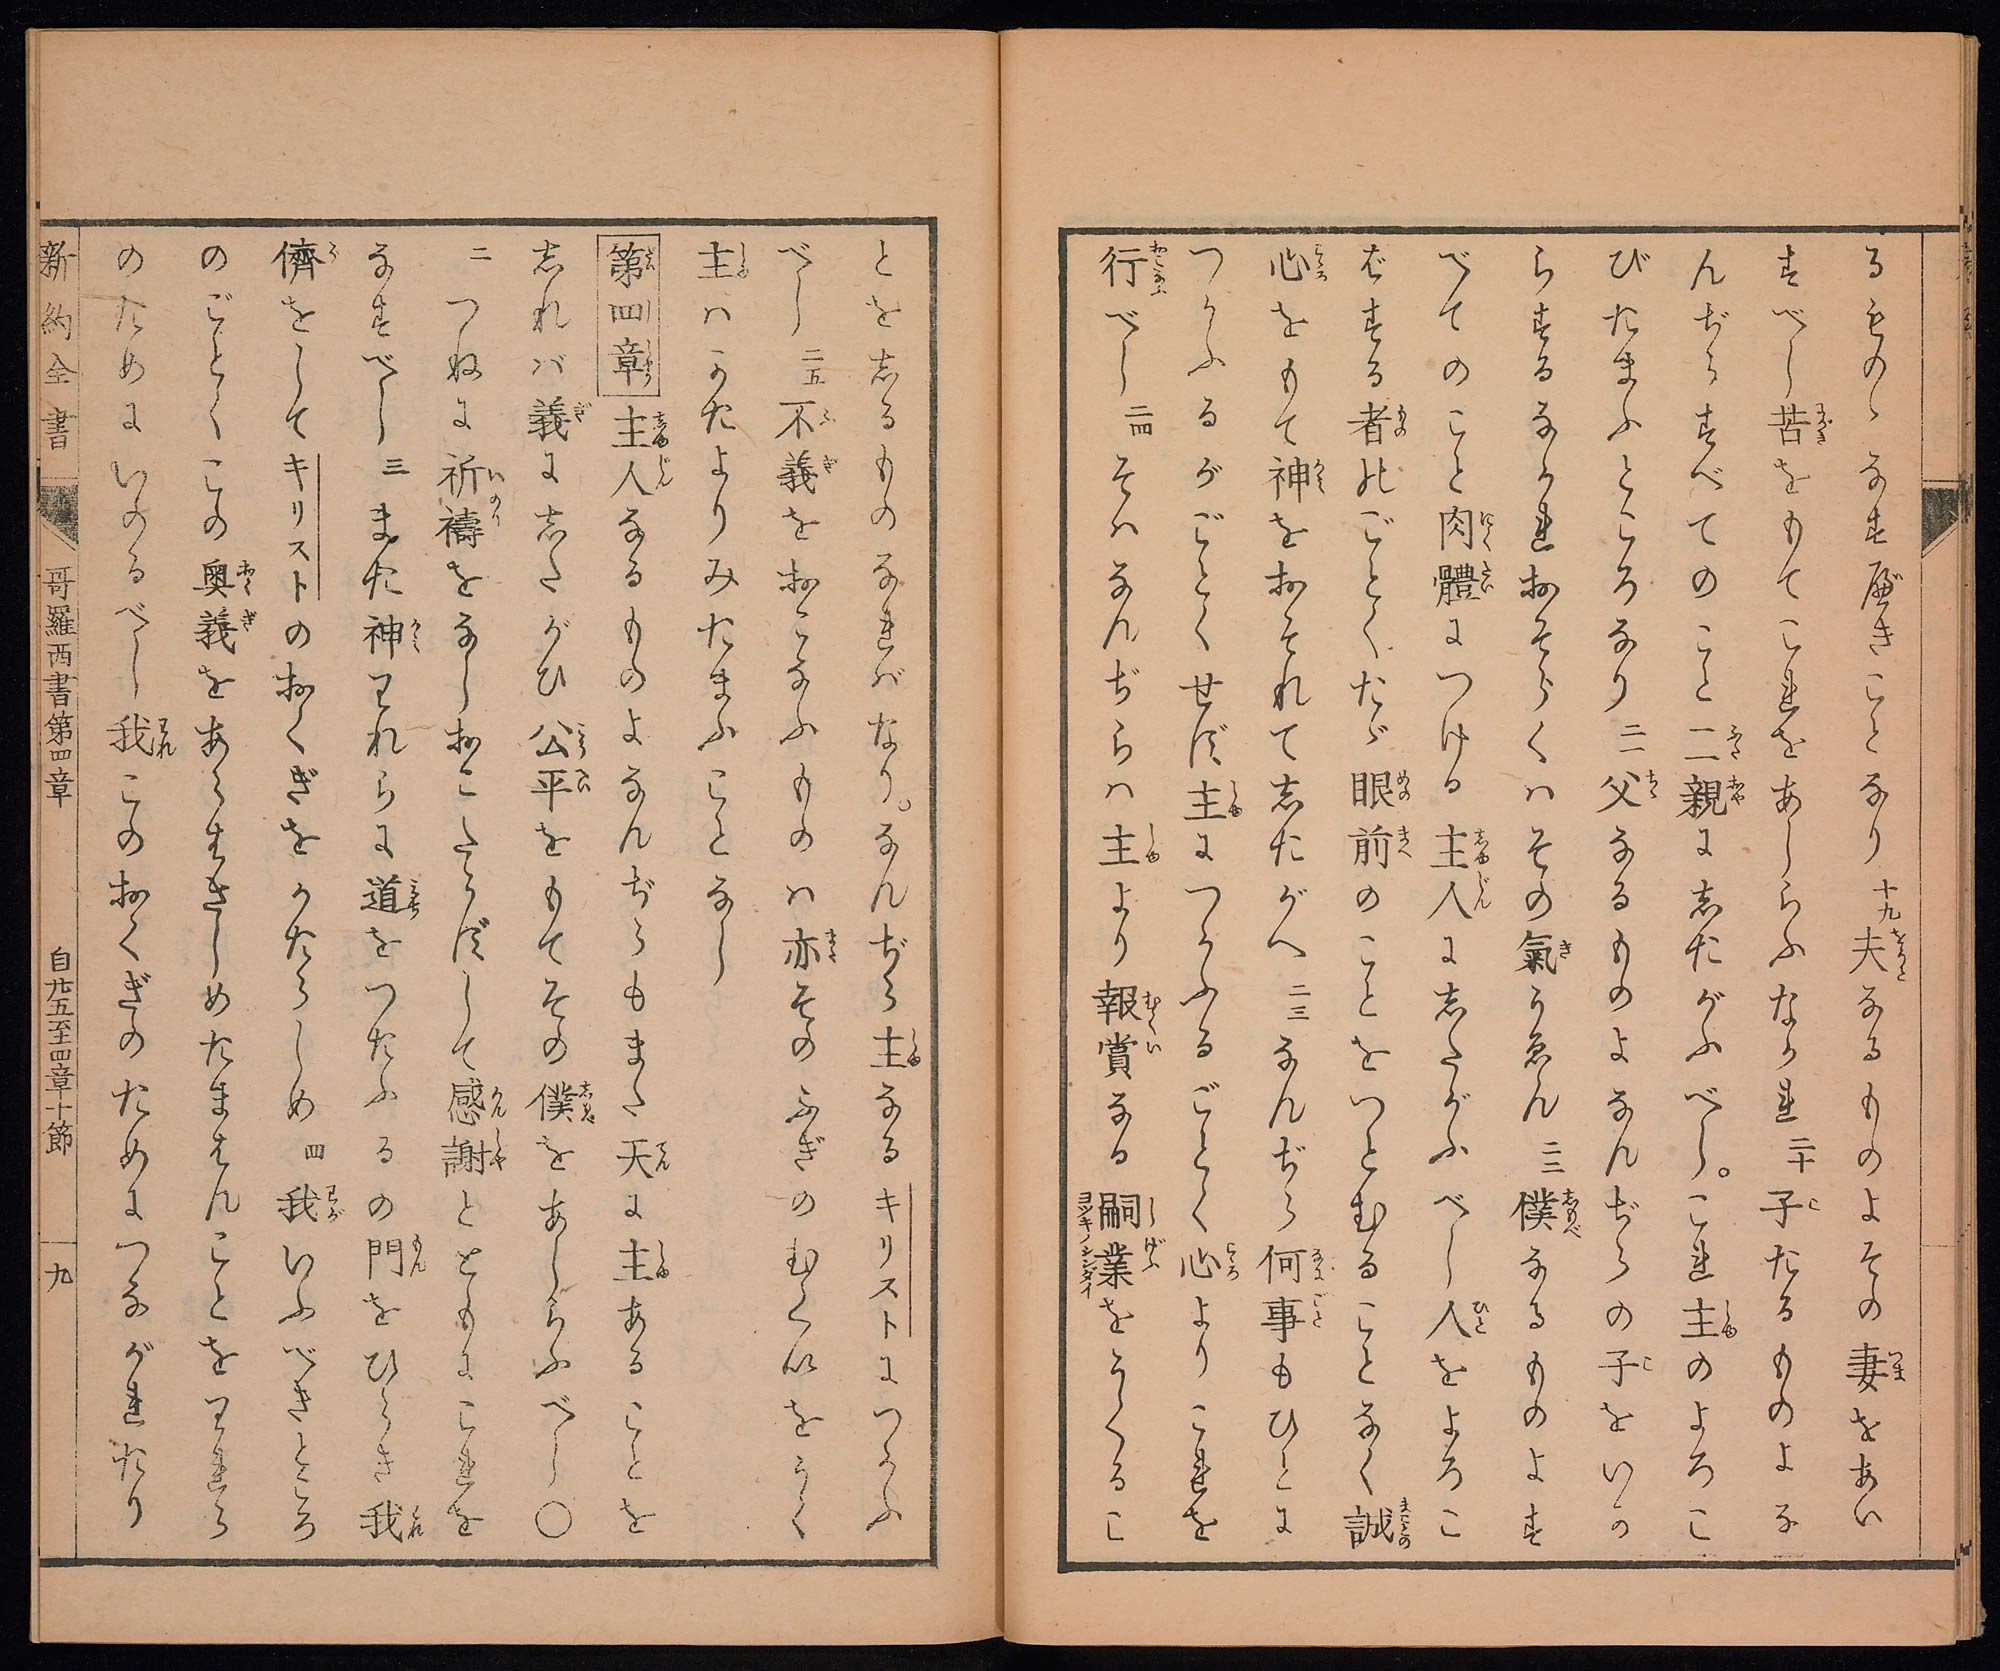 るものゝなすべきことなり十九夫なるものよその妻をあい
すべし苦をもてこれをあしらふなかれ二十子たるものよな
んぢらすべてのこと二親にしたがふべし。これ主のよろこ
びたまふところなり二一父なるものよなんぢらの子をいか
らするなかれおそらくハその氣うゑん二二僕なるものよす
べてのこと肉體につける主人にしたがふべし人をよろこ
ばする者のごとくたゞ眼前のことをいとむることなく誠
心をもて神をおそれてしたがへ二三なんぢら何事もひとに
つかふるがごとくせず主につかふるごとく心よりこれを
行べし二四そハなんぢらハ主より報賞なる嗣業をうくるこ
とをしるものなれバなり。なんぢら主なるキリストにつかふ
べし二五不義をおこなふものハ亦そのふぎのむくいをうく
主ハかたよりみたまふことなし
第四章主人なるものよなんぢらもまた天に主あることを
しれバ義にしたがひ公平をもてその僕をあしらふべし〇
二つねに祈禱をなしおこたらずして感謝とともにこれを
なすべし三また神われらに道をつたふるの門をひらき我
儕をしてキリストのおくぎをかたらしめ四我いふべきところ
のごとくこの奥義をあらはさしめたまはんことをわれら
のためにいのるべし我このおくぎのためにつながれたり
新約全書 哥羅西書第四章 自廿五至四章十節 九